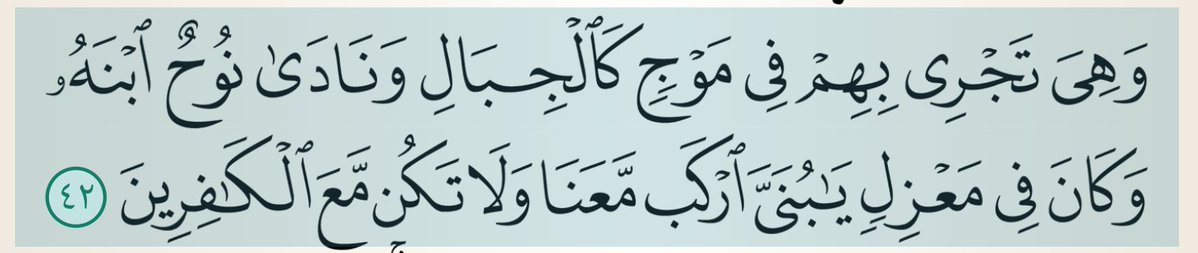 وَهِىَ تَجْرِى بِهِمْ فِى مَوْجٍ كَٱلْجِبَالِ وَنَادَىٰ نُوحٌ ٱبْنَهُۥ
وَكَانَ فِى مَعْزِلٍ يَـٰبُنَىَّ ٱرْكَب مَّعَنَا وَلَا تَكُن مَّعَ ٱلْكَـٰفِرِينَ ٤٢